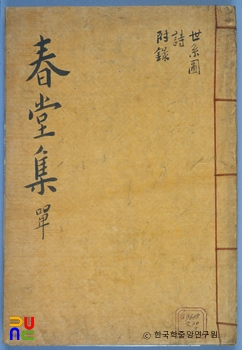 世系圖
詩
附錄
春堂集 單
ⓒ한국학중앙연구원